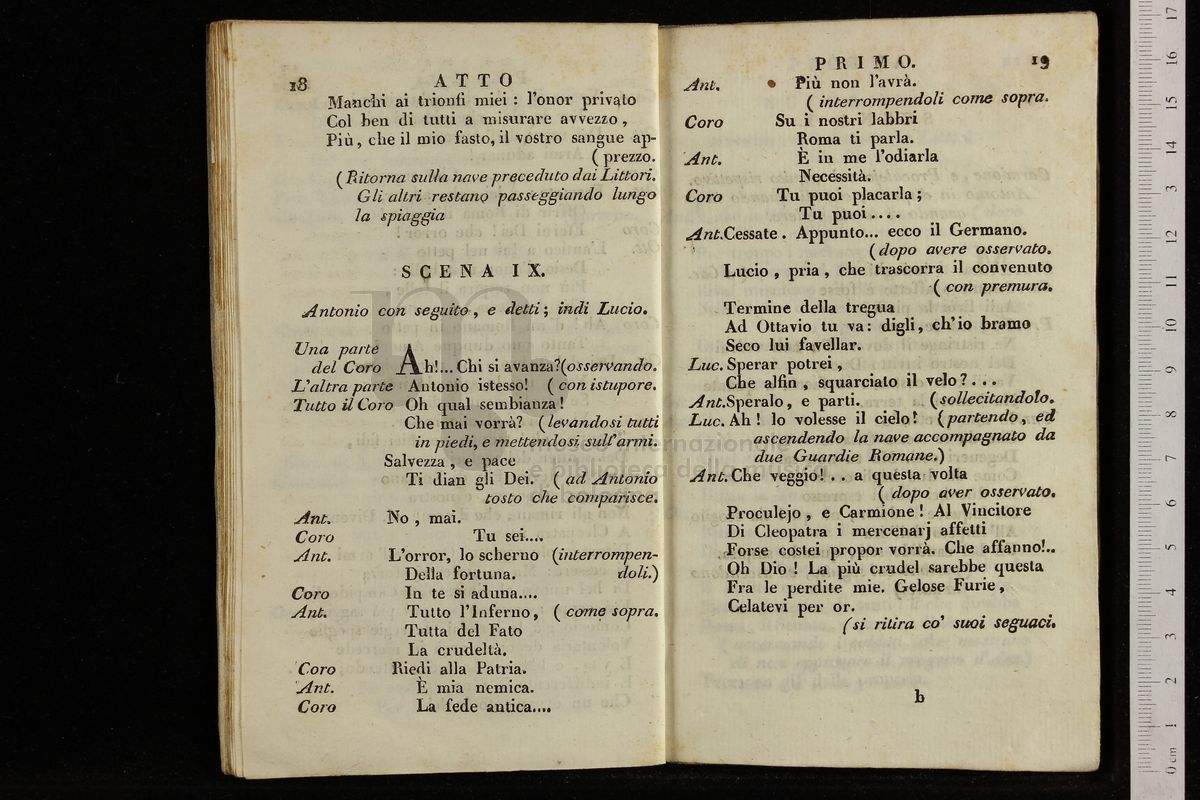 18 ATTO
Manchi ai trionfi miei : l'onor privato
Col ben di tutti a misurare avvezzo ,
Più, che il mio fasto, il vostro sangue ap-
( prezzo.
( Ritorna sulla nave preceduto dai Littori.
Gli altri restano passeggiando lungo
la spiaggia
SCENA IX.
Antonio con seguito , e detti ; indi Lucio.
Una parte
del Coro Ah!... Chi si avanza?(osservando.
L'altra parte Antonio istesso! ( con istupore.
Tutto il Coro Oh qual sembianza !
Che mai vorrà? (levandosi tutti
in piedi, e mettendosi sull'armi.
Salvezza , e pace
Ti dian gli Dei. ( ad Antonio
tosto che comparisce.
Ant. No , mai.
Coro Tu sei....
Ant. L'orror, lo scherno (interrompen-
Della fortuna. doli.)
Coro In te si aduna....
Ant. Tutto l'Inferno, ( come sopra.
Tutta del Fato
La crudeltà.
Coro Riedi alla Patria.
Ant. È mia nemica.
Coro La fede antica....
PRIMO. 19
Ant. Più non l'avrà.
( interrompendoli come sopra.
Coro Su i nostri labbri
Roma ti parla.
Ant. È in me l'odiarla
Necessità.
Coro Tu puoi placarla ;
Tu puoi ....
Ant.Cessate . Appunto... ecco il Germano.
(dopo avere osservato.
Lucio , pria , che trascorra il convenuto
( con premura.
Termine della tregua
Ad Ottavio tu va: digli, ch'io bramo
Seco lui favellar.
Luc. Sperar potrei ,
Che alfin , squarciato il velo ? . . .
Ant.Speralo, e parti. (sollecitandolo.
Luc. Ah ! lo volesse il cielo! (partendo, ed
ascendendo la nave accompagnato da
due Guardie Romane.)
Ant. Che veggio! . . a questa volta
( dopo aver osservato.
Proculejo , e Carmione ! Al Vincitore
Di Cleopatra i mercenarj affetti
Forse costei propor vorrà. Che affanno!..
Oh Dio ! La più crudel sarebbe questa
Fra le perdite mie. Gelose Furie ,
Celatevi per or.
(si ritira co' suoi seguaci.
b
0 cm 1 2 3 4 5 6 7 8 9 10 11 12 13 14 15 16 17